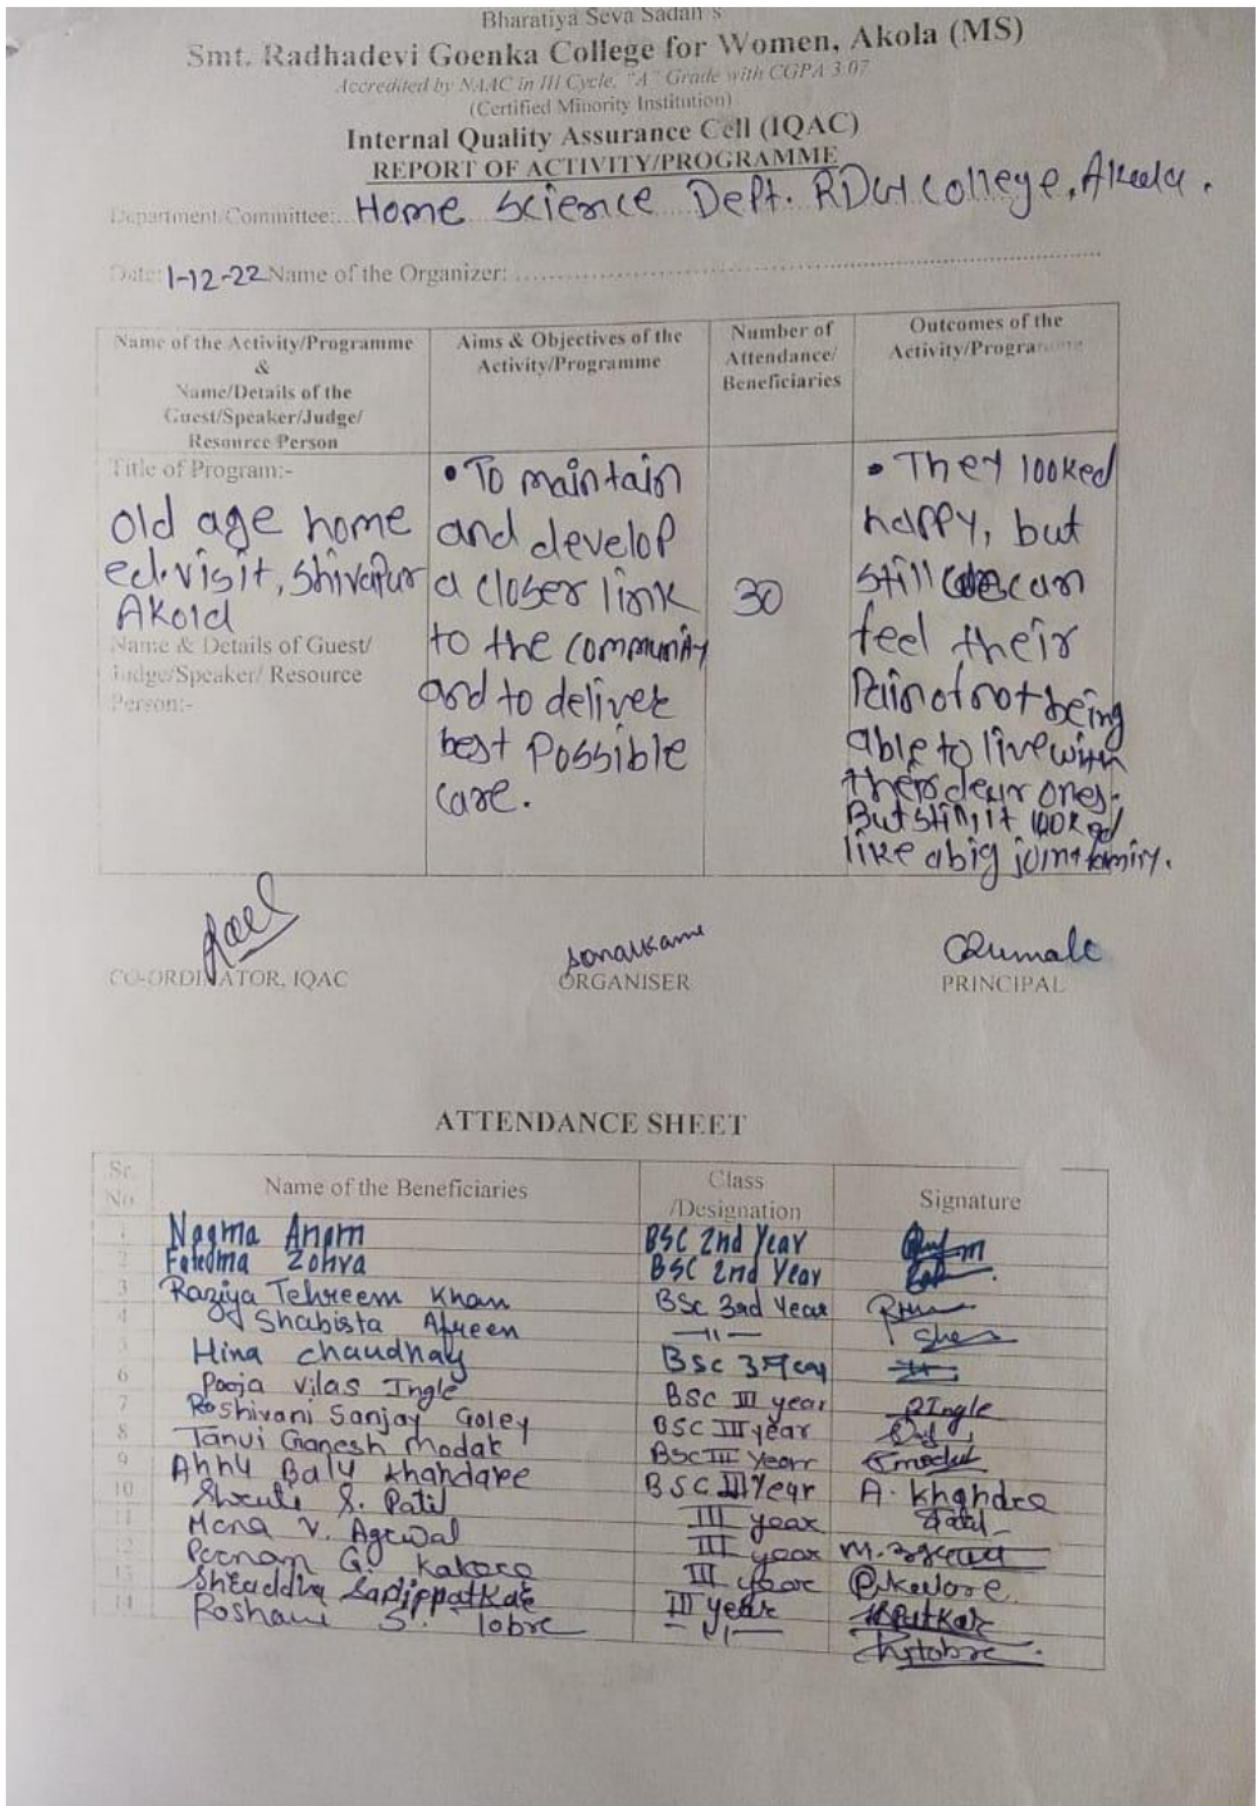 Bharatiya Seva Sadan's
Smt. Radhadevi Goenka College for Women, Akola (MS)
Accredited by NAAC in III Cycle, "A" Grade with CGPA 3.07
(Certified Minority Institution)
Internal Quality Assurance Cell (IQAC)
REPORT OF ACTIVITY/PROGRAMME
Department/Committee:... Home Science Dept. RDG College, Akola.
Date: 1-12-22 Name of the Organizer: ........
Name of the Activity/Programme
&
Name/Details of the
Guest/Speaker/Judge/
Resource Person
Aims & Objectives of the
Activity/Programme
Number of
Attendance/
Beneficiaries
Outcomes of the
Activity/Programme
Title of Program:-
Old age home
ed. visit, Shivapur
Akola
Name & Details of Guest/
Judge/Speaker/ Resource
Person:-
• To maintain
and develop
a closer link
to the community
and to deliver
best possible
care.
30
• They looked
happy, but
still can
feel their
Pain of not being
able to live with
their dear ones.
But still, it looked
like a big joint family.
CO-ORDINATOR, IQAC
ORGANISER
PRINCIPAL
ATTENDANCE SHEET
Sr. No
Name of the Beneficiaries
Class /Designation
Signature
1 Nagma Anam BSC 2nd Year
2 Zohra BSC 2nd Year
3 Raziya Tehreem Khan BSc 3rd Year
4 Shabista Afreen —11—
5 Hina Chaudhay BSc 3 Year
6 Pooja Vilas Ingle BSC III year PIngle
7 Roshivani Sanjay Goley BSC III year
8 Tanvi Ganesh Modak BSc III Year
9 Ahhy Balu Khandare BSC III Year A. Khandre
10 S. Patil III year Patil
11 Mona V. Agrwal III year
12 Poonam G. III year
13 Shraddha III year
14 Roshani S. Tobre —11—